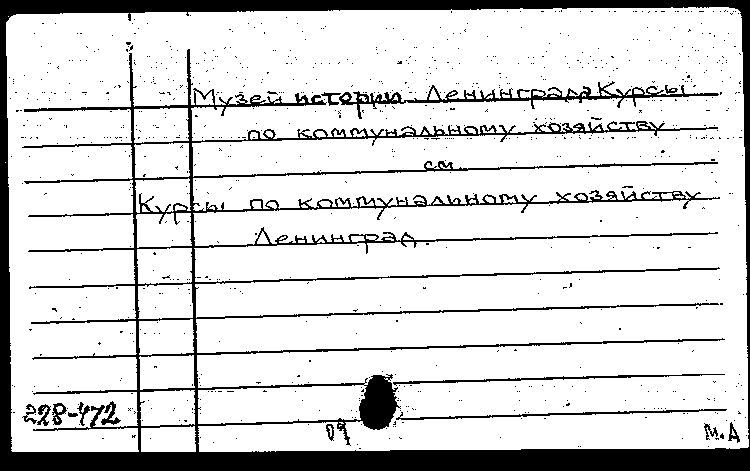 Музей истории Ленинграда Курсы
по коммунальному хозяйству
см.
Курсы по коммунальному хозяйству
Ленинград.
228-472
09
М.А